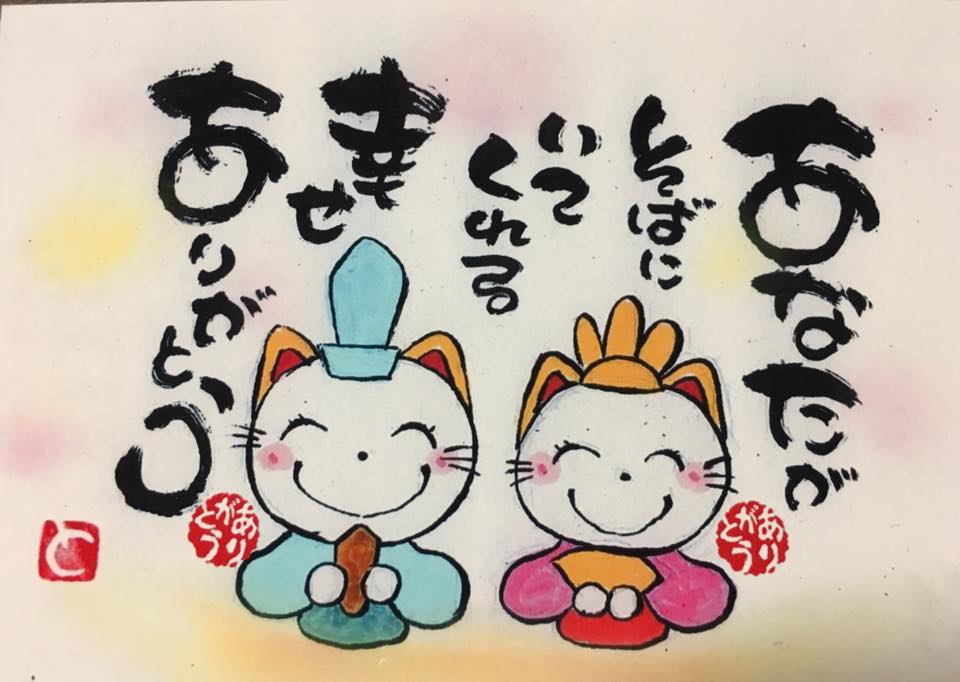 あなたが
そばに
いて
くれる
幸せ
ありがとう
ありがとう
ありがとう
と